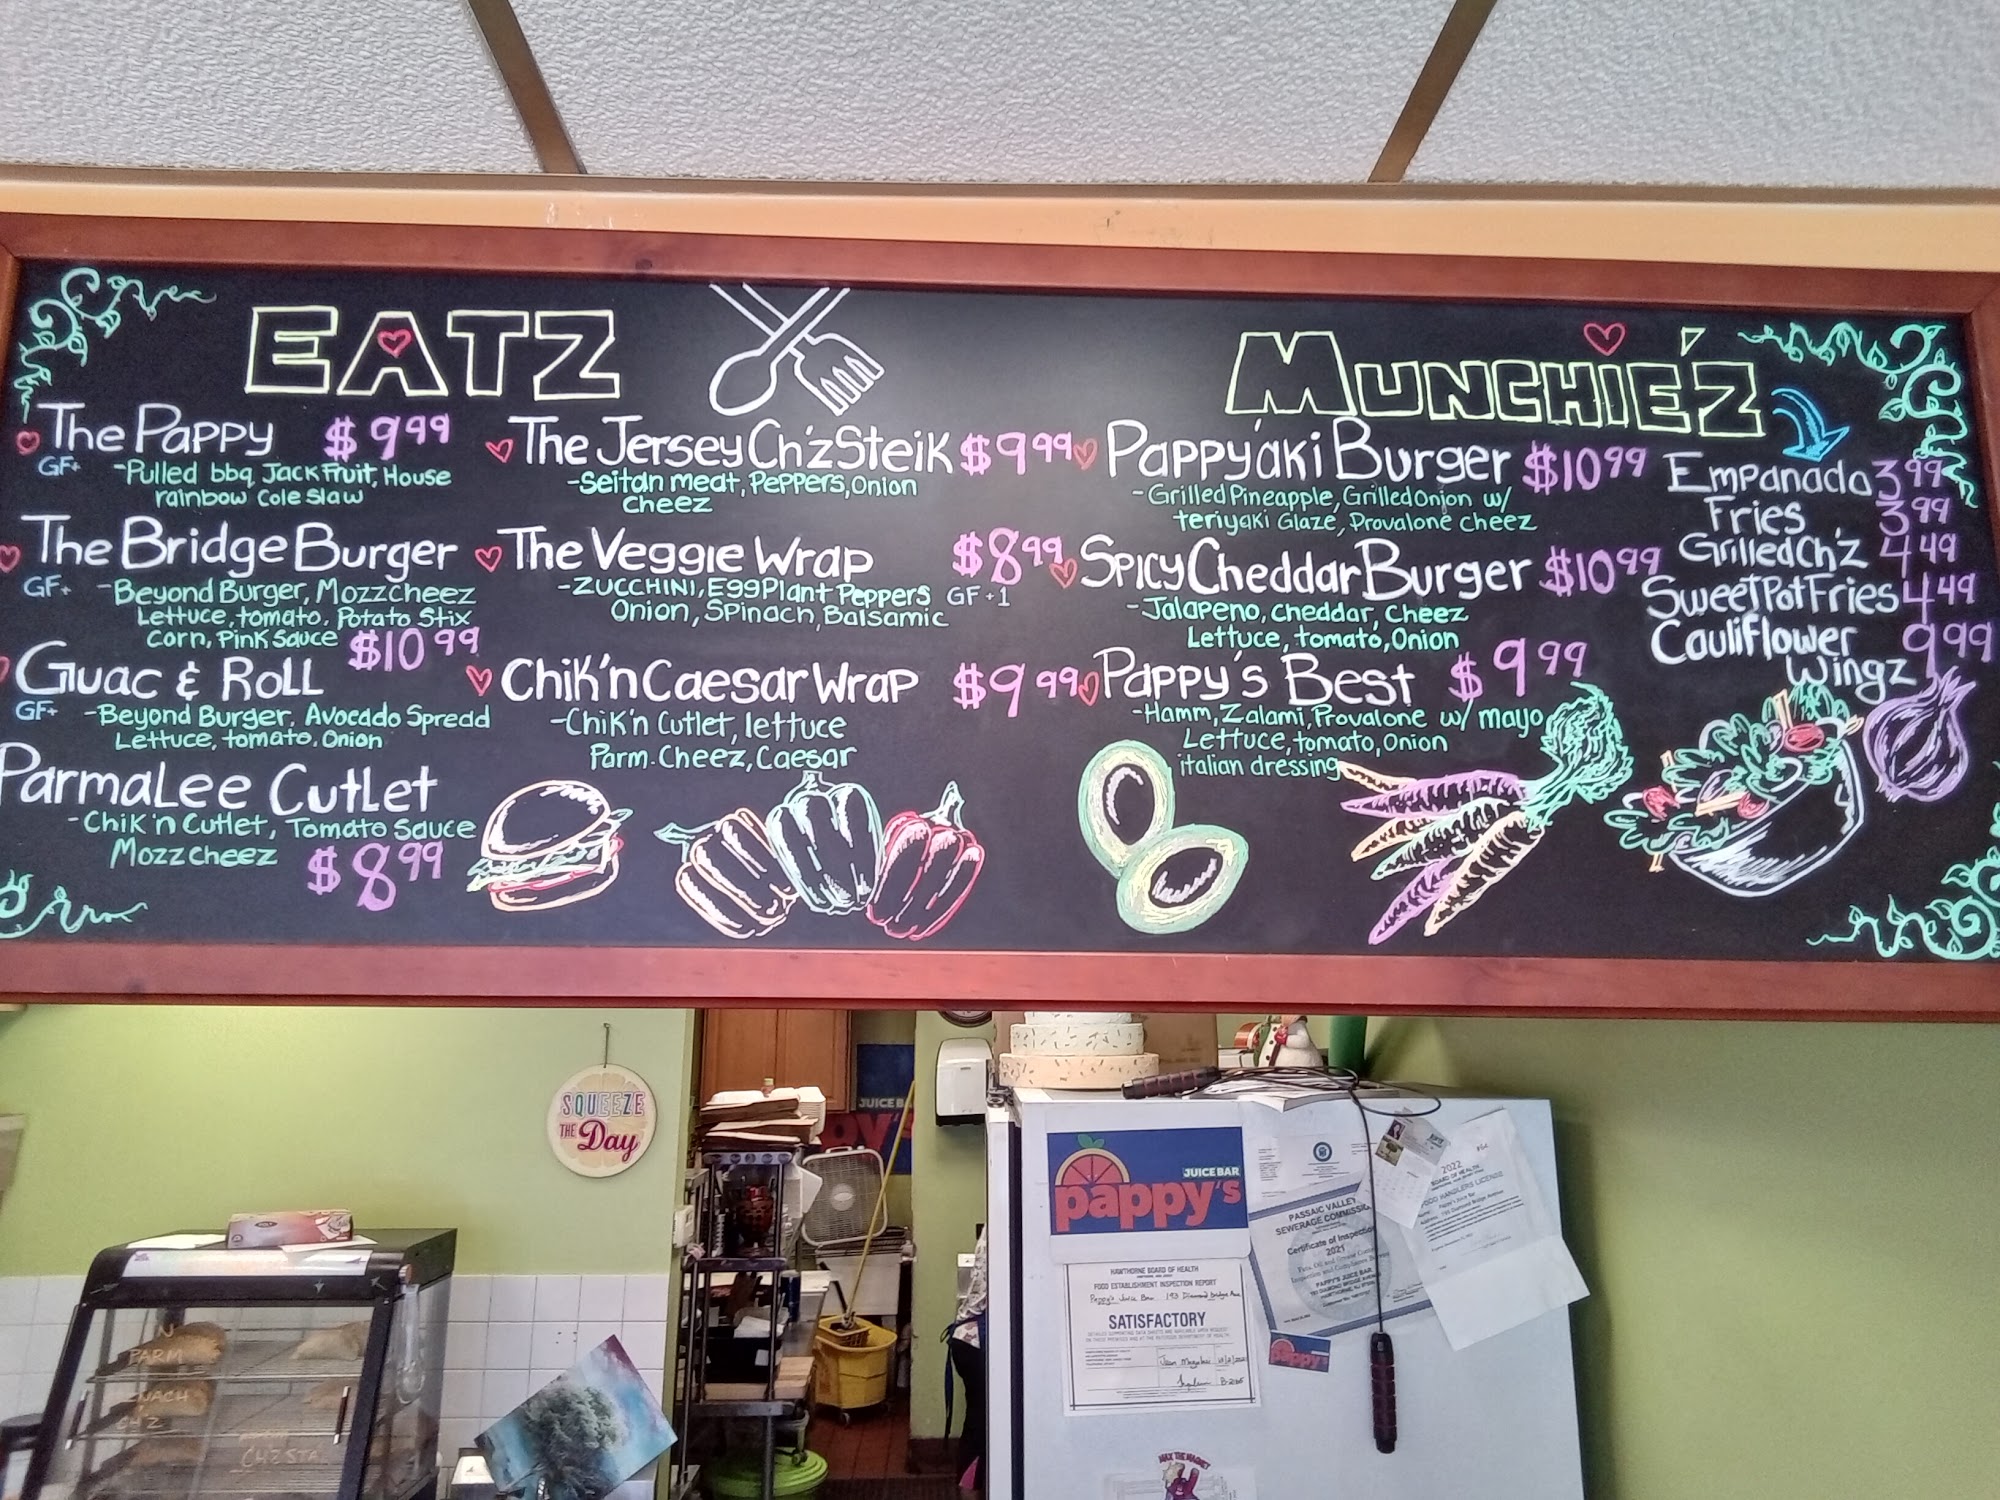 EATZ
The Pappy $9.99
GF+ -Pulled bbq, JackFruit, House
rainbow Cole Slaw
The Bridge Burger
GF+ -Beyond Burger, Mozzcheez
Lettuce, tomato, Potato Stix
Corn, Pink Sauce $10.99
Guac & Roll
GF+ -Beyond Burger, Avocado Spread
Lettuce, tomato, Onion
ParmaLee Cutlet
-Chik'n Cutlet, Tomato Sauce
Mozzcheez $8.99
The Jersey Ch'z Steik $9.99
-Seitan meat, Peppers, Onion
Cheez
The Veggie Wrap $8.99
-ZUCCHINI, EggPlant Peppers GF+1
Onion, Spinach, Balsamic
Chik'n Caesar Wrap $9.99
-Chik'n Cutlet, lettuce
Parm. Cheez, Caesar
MUNCHIE'Z
Pappy'aki Burger $10.99
-Grilled Pineapple, Grilled Onion w/
teriyaki Glaze, Provalone cheez
Spicy Cheddar Burger $10.99
-Jalapeno, cheddar, Cheez
Lettuce, tomato, Onion
Pappy's Best $9.99
-Hamm, Zalami, Provalone w/ mayo
Lettuce, tomato, Onion
italian dressing
Empanada 3.99
Fries 3.99
Grilled Ch'z 4.49
Sweet Pot Fries 4.49
Cauliflower 9.99
Wingz
SQUEEZE
THE Day
JUICE BAR
JUICE BAR
pappy's
HAWTHORNE BOARD OF HEALTH
FOOD ESTABLISHMENT INSPECTION REPORT
Pappy's Juice Bar
SATISFACTORY
PASSAIC VALLEY
SEWERAGE COMMISSION
Certificate of Inspection
2021
PAPPY'S JUICE BAR
2022
BOARD OF HEALTH
FOOD HANDLERS LICENSE
pappy's
MAX THE MAGNET
PARM
CH'Z